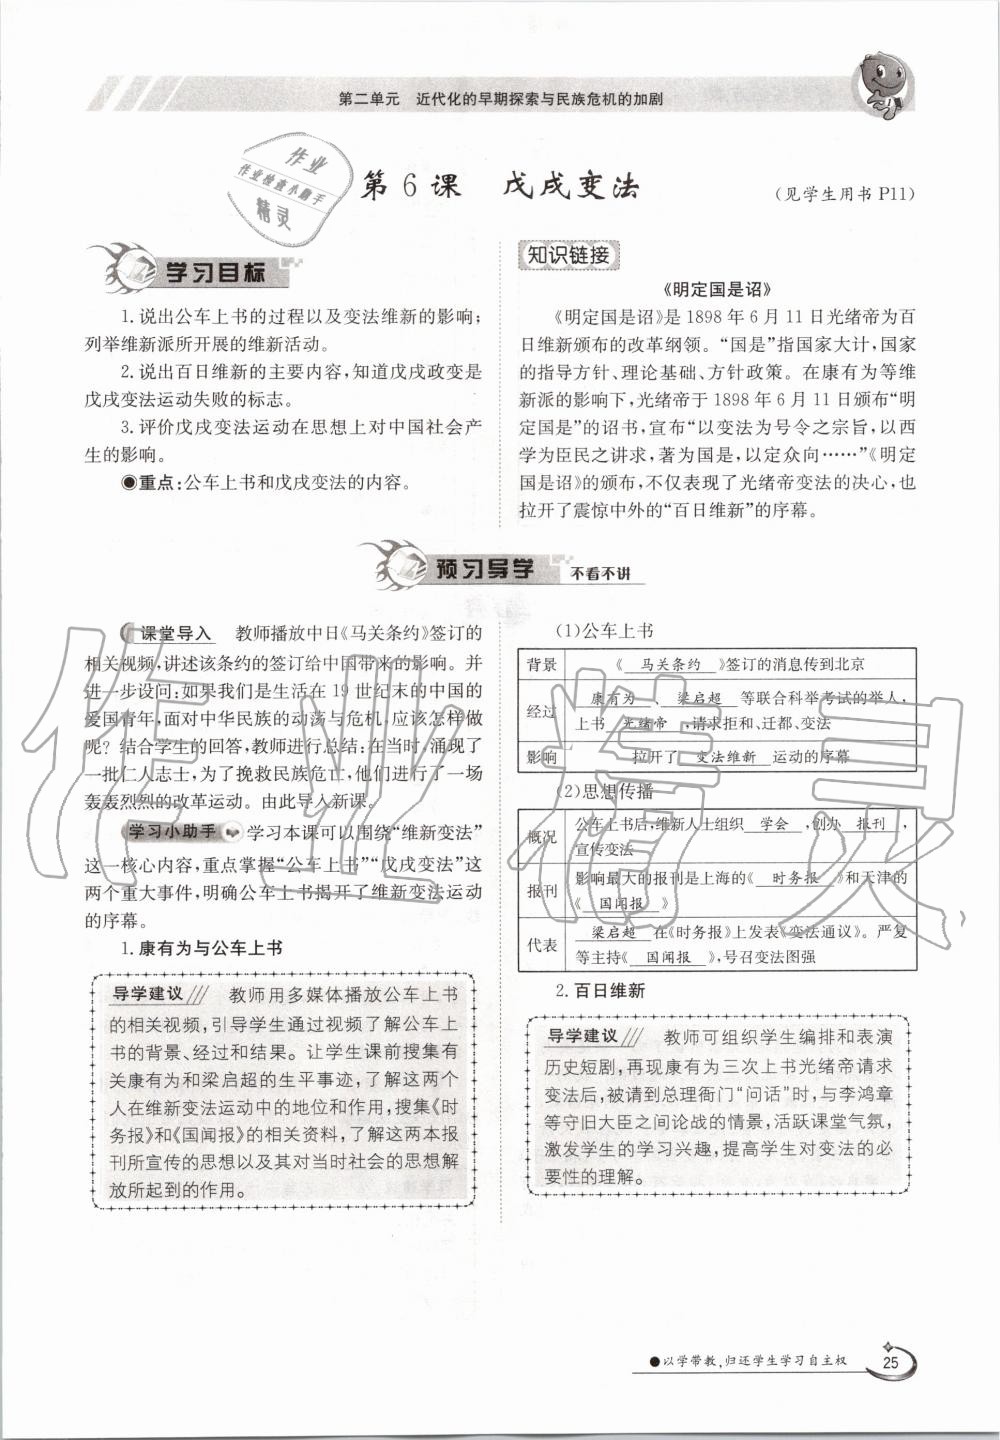 第二单元　近代化的早期探索与民族危机的加剧
作业
作业检查小助手
精灵
第 6 课　戊戌变法
(见学生用书 P11)
学习目标
1. 说出公车上书的过程以及变法维新的影响;
列举维新派所开展的维新活动。
2. 说出百日维新的主要内容,知道戊戌政变是
戊戌变法运动失败的标志。
3. 评价戊戌变法运动在思想上对中国社会产
生的影响。
●重点:公车上书和戊戌变法的内容。
知识链接
《明定国是诏》
《明定国是诏》是 1898 年 6 月 11 日光绪帝为百
日维新颁布的改革纲领。“国是”指国家大计,国家
的指导方针、理论基础、方针政策。在康有为等维
新派的影响下,光绪帝于 1898 年 6 月 11 日颁布“明
定国是”的诏书,宣布“以变法为号令之宗旨,以西
学为臣民之讲求,著为国是,以定众向……”《明定
国是诏》的颁布,不仅表现了光绪帝变法的决心,也
拉开了震惊中外的“百日维新”的序幕。
预习导学　不看不讲
课堂导入　教师播放中日《马关条约》签订的
相关视频,讲述该条约的签订给中国带来的影响。并
进一步设问:如果我们是生活在 19 世纪末的中国的
爱国青年,面对中华民族的动荡与危机,应该怎样做
呢? 结合学生的回答,教师进行总结:在当时,涌现了
一批仁人志士,为了挽救民族危亡,他们进行了一场
轰轰烈烈的改革运动。由此导入新课。
学习小助手　学习本课可以围绕“维新变法”
这一核心内容,重点掌握“公车上书”“戊戌变法”这
两个重大事件,明确公车上书揭开了维新变法运动
的序幕。
1. 康有为与公车上书
导学建议///　教师用多媒体播放公车上书
的相关视频,引导学生通过视频了解公车上
书的背景、经过和结果。让学生课前搜集有
关康有为和梁启超的生平事迹,了解这两个
人在维新变法运动中的地位和作用,搜集《时
务报》和《国闻报》的相关资料,了解这两本报
刊所宣传的思想以及其对当时社会的思想解
放所起到的作用。
(1)公车上书
背景　《 马关条约 》签订的消息传到北京
经过　康有为 、 梁启超 等联合科举考试的举人,
上书 光绪帝 ,请求拒和、迁都、变法
影响　拉开了 变法维新 运动的序幕
(2)思想传播
概况　公车上书后,维新人士组织 学会 ,创办 报刊 ,
宣传变法
报刊　影响最大的报刊是上海的《 时务报 》和天津的
《 国闻报 》
代表　梁启超 在《时务报》上发表《变法通议》。严复
等主持《 国闻报 》,号召变法图强
2. 百日维新
导学建议///　教师可组织学生编排和表演
历史短剧,再现康有为三次上书光绪帝请求
变法后,被请到总理衙门“问话”时,与李鸿章
等守旧大臣之间论战的情景,活跃课堂气氛,
激发学生的学习兴趣,提高学生对变法的必
要性的理解。
作业精灵
●以学带教,归还学生学习自主权
25